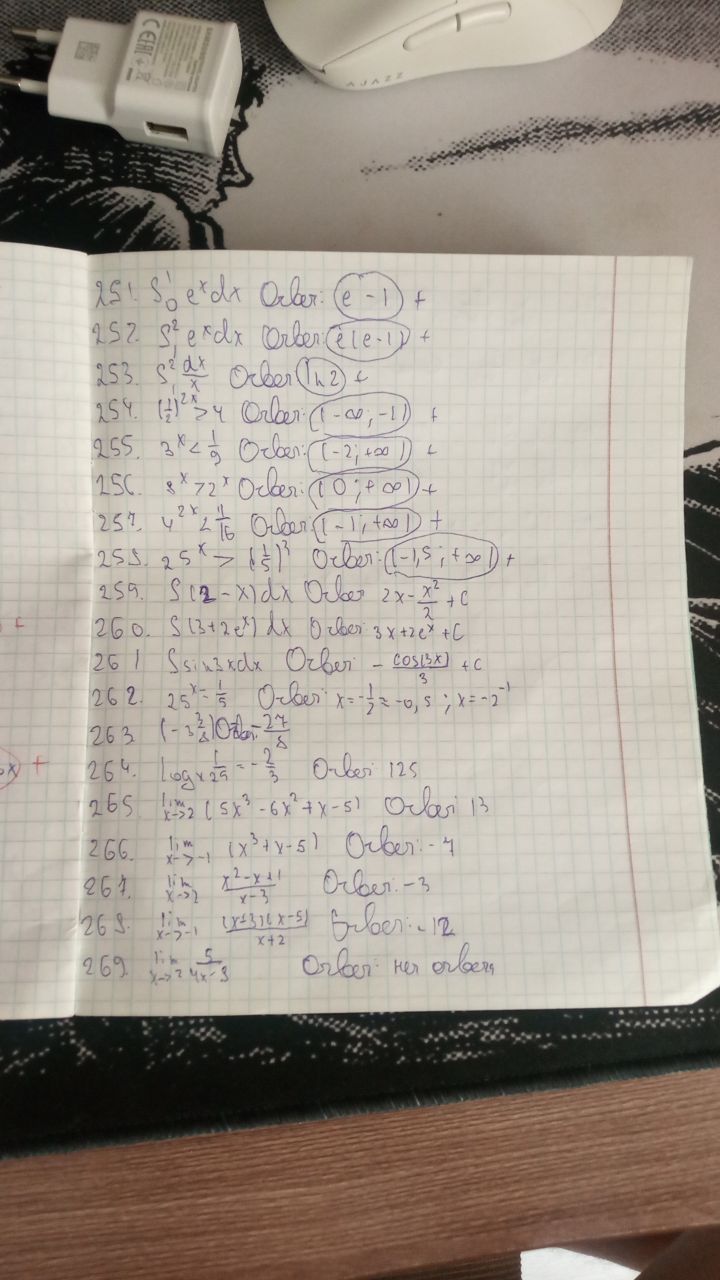 AJAZZ
251. ∫₀¹ eˣdx Ответ: e - 1 +
252. ∫₁² eˣdx Ответ: e(e-1) +
253. ∫₁² dx/x Ответ: ln 2 +
254. (1/2)²ˣ > 4 Ответ: (-∞; -1) +
255. 3ˣ < 1/9 Ответ: (-2; +∞) +
256. 8ˣ > 2ˣ Ответ: (0; +∞) +
257. 4²ˣ < 1/16 Ответ: (-1; +∞) +
258. 25ˣ > (1/5)³ Ответ: (-1,5; +∞) +
259. ∫(2 - x)dx Ответ 2x - x²/2 + C
260. ∫(3+2eˣ) dx Ответ 3x + 2eˣ + C
261 ∫sin3xdx Ответ - cos(3x)/3 + C
262. 25ˣ = 1/5 Ответ: x = -1/2 = -0,5 ; x = -2⁻¹
263. (-3 3/8) Ответ: -27/8
264. logx 1/25 = -2/3 Ответ 125
265. lim x→2 (5x³ - 6x² + x - 5) Ответ 13
266. lim x→-1 (x³ + x - 5) Ответ: -7
267. lim x→2 x²-x+1/x-3 Ответ: -3
268. lim x→-1 (x+3)(x-5)/x+2 Ответ: -12
269. lim x→2 5/4x-3 Ответ: нет ответа